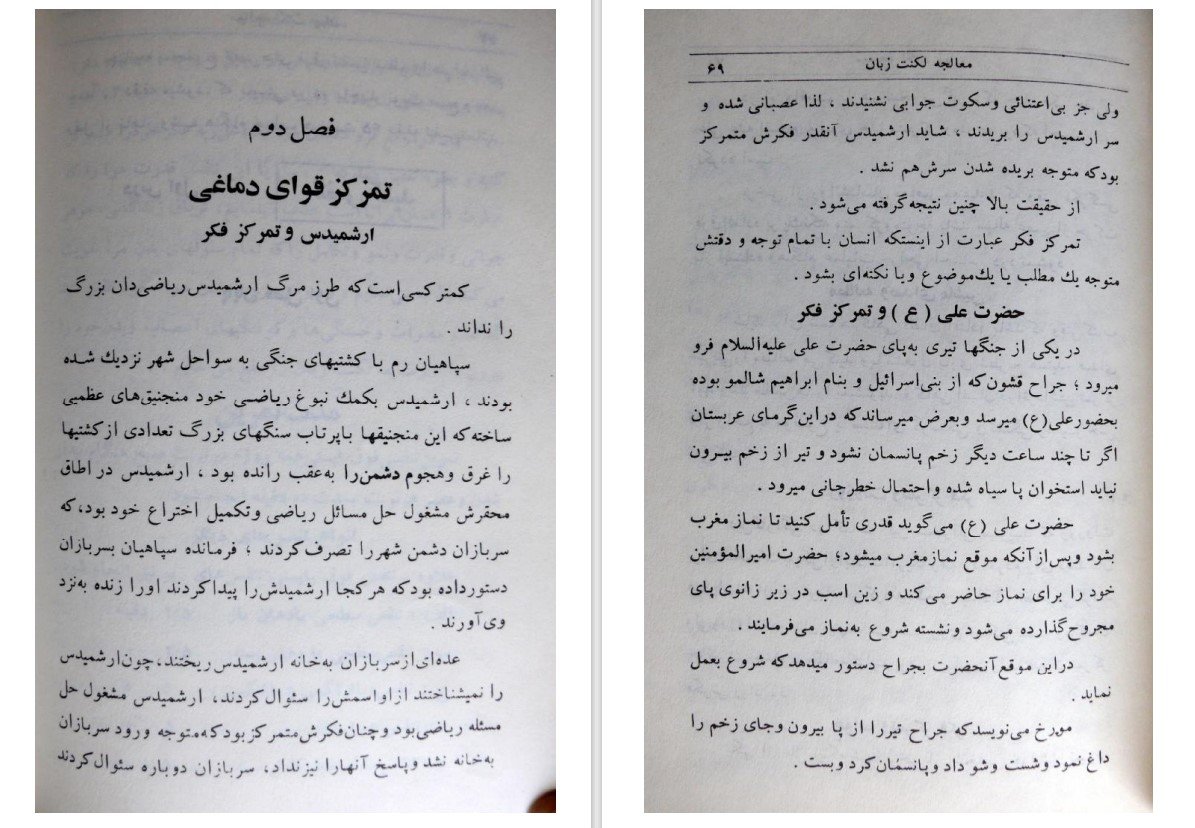 فصل دوم
تمزکز قوای دماغی
ارشمیدس و تمرکز فکر
کمتر کسی است که طرز مرگ ارشمیدس ریاضی‌دان بزرگ
را نداند .
سپاهیان رم با کشتیهای جنگی به سواحل شهر نزدیك شده
بودند ، ارشمیدس بکمك نبوغ ریاضی خود منجنیق‌های عظمیی
ساخته که این منجنیقها با پرتاب سنگهای بزرگ تعدادی از کشتیها
را غرق و هجوم دشمن را به عقب رانده بود ، ارشمیدس در اطاق
محقرش مشغول حل مسائل ریاضی و تکمیل اختراع خود بود، که
سربازان دشمن شهر را تصرف کردند ؛ فرمانده سپاهیان بسربازان
دستور داده بود که هر کجا ارشمیدس را پیدا کردند او را زنده به نزد
وی آورند .
عده‌ای از سربازان به خانه ارشمیدس ریختند، چون ارشمیدس
را نمیشناختند از او اسمش را سئوال کردند، ارشمیدس مشغول حل
مسئله ریاضی بود و چنان فکرش متمرکز بود که متوجه ورود سربازان
به خانه نشد و پاسخ آنها را نیز نداد، سربازان دوباره سئوال کردند
معالجه لکنت زبان ۶۹
ولی جز بی‌اعتنائی و سکوت جوابی نشنیدند ، لذا عصبانی شده و
سر ارشمیدس را بریدند ، شاید ارشمیدس آنقدر فکرش متمرکز
بود که متوجه بریده شدن سرش هم نشد .
از حقیقت بالا چنین نتیجه گرفته می‌شود .
تمرکز فکر عبارت از اینستکه انسان با تمام توجه و دقتش
متوجه یك مطلب یا یك موضوع و یا نکته‌ای بشود .
حضرت علی ( ع ) و تمرکز فکر
در یکی از جنگها تیری به پای حضرت علی علیه‌السلام فرو
میرود ؛ جراح قشون که از بنی‌اسرائیل و بنام ابراهیم شالمو بوده
بحضور علی(ع) میرسد و بعرض میرساند که در این گرمای عربستان
اگر تا چند ساعت دیگر زخم پانسمان نشود و تیر از زخم بیرون
نیاید استخوان پا سیاه شده و احتمال خطر جانی میرود .
حضرت علی (ع) می‌گوید قدری تأمل کنید تا نماز مغرب
بشود و پس از آنکه موقع نماز مغرب میشود؛ حضرت امیرالمؤمنین
خود را برای نماز حاضر می‌کند و زین اسب در زیر زانوی پای
مجروح گذارده می‌شود و نشسته شروع به نماز می‌فرمایند .
در این موقع آنحضرت بجراح دستور میدهد که شروع بعمل
نماید .
مورخ می‌نویسد که جراح تیر را از پا بیرون و جای زخم را
داغ نمود و شست و شو داد و پانسمان کرد و بست .